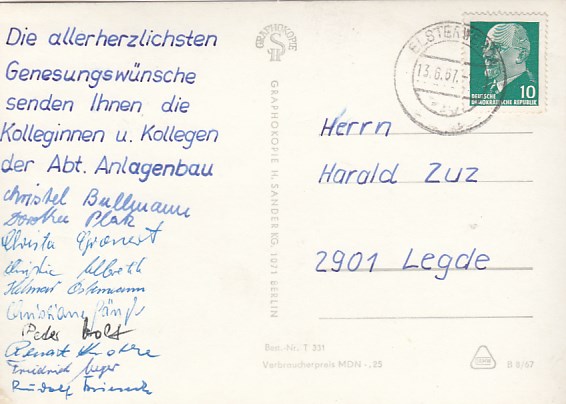 Die allerherzlichsten
Genesungswünsche
senden Ihnen die
Kolleginnen u. Kollegen
der Abt. Anlagenbau
Christel Bullmann
Dorothea Plak
Christa
Helmar Ostermann
Christiane
Peter Wolf
Renate
Friedrich
Rudolf
GRAPHOKOPIE
GRAPHOKOPIE H. SANDER KG. 1071 BERLIN
13.6.67.
DEUTSCHE
DEMOKRATISCHE REPUBLIK
10
Herrn
Harald Zuz
2901 Legde
Bes.-Nr. T 331
Verbraucherpreis MDN -,25
B 8/67